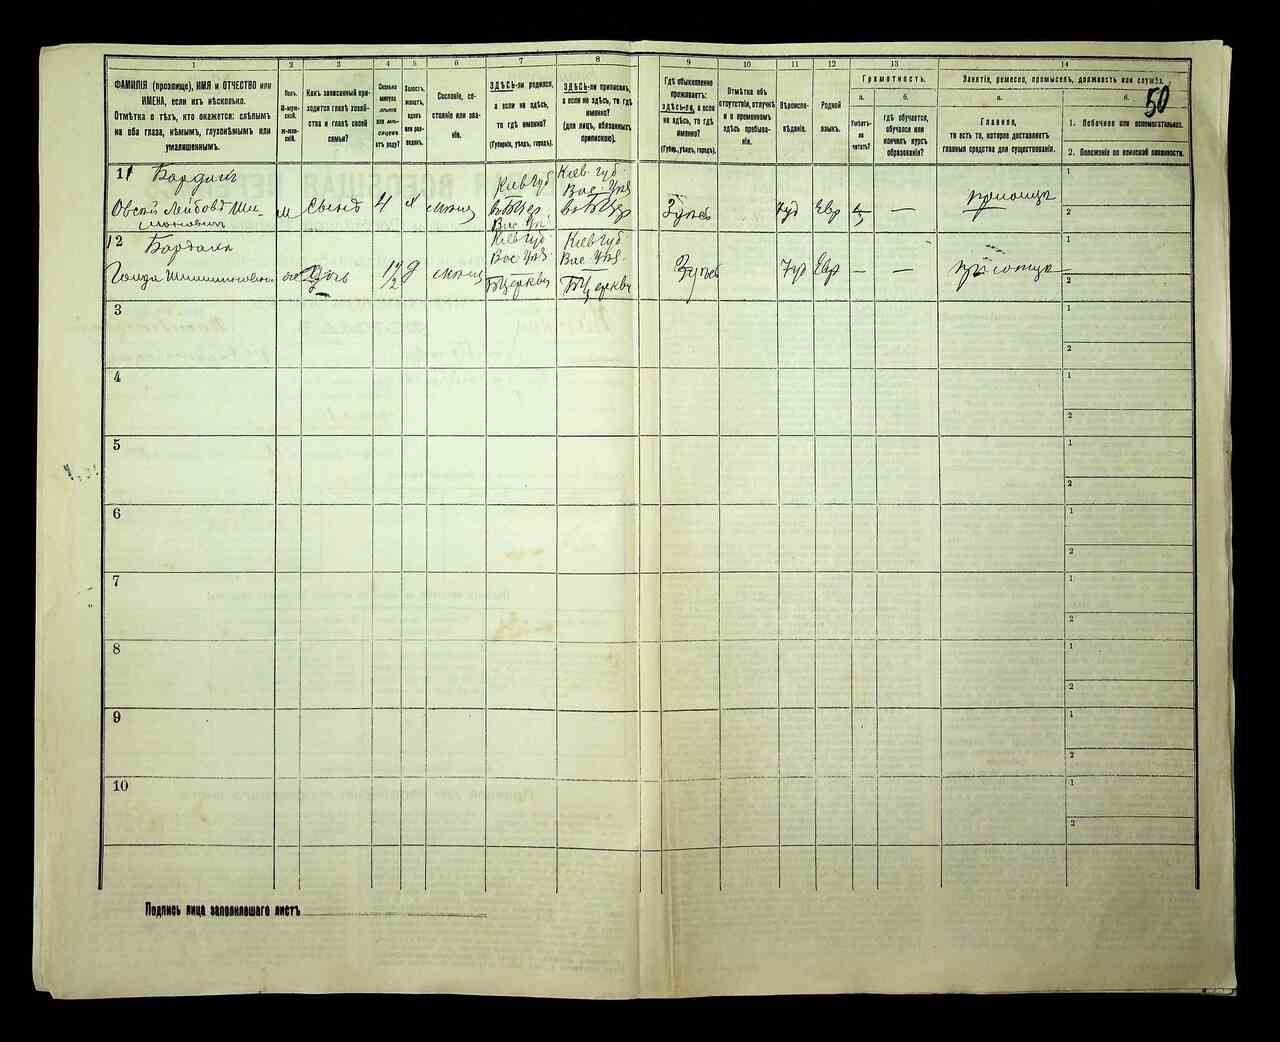 1
2
3
4
5
6
7
8
9
10
11
12
13
14
50
ФАМИЛІЯ (прозвище), ИМЯ и ОТЧЕСТВО или
ИМЕНА, если ихъ нѣсколько.
Отмѣтка о тѣхъ, кто окажется: слѣпымъ
на оба глаза, нѣмымъ, глухонѣмымъ или
умалишеннымъ.
Полъ.
М-муж-
ской.
Ж-жен-
скій.
Какъ записанный при-
ходится главѣ хозяй-
ства и главѣ своей
семьи?
Сколько
минуло
лѣтъ
или мѣ-
сяцевъ
отъ роду?
Холостъ,
женатъ,
вдовъ
или раз-
веденъ.
Сословіе, со-
стояніе или зва-
ніе.
ЗДѢСЬ-ли родился,
а если не здѣсь,
то гдѣ именно?
(Губернія, уѣздъ, городъ).
ЗДѢСЬ-ли приписанъ,
а если не здѣсь, то гдѣ
именно?
(для лицъ, обязанныхъ
припискою).
Гдѣ обыкновенно
проживаетъ:
ЗДѢСЬ-ли, а если
не здѣсь, то гдѣ
именно?
(Губер., уѣздъ, городъ).
Отмѣтка объ
отсутствіи, отлучкѣ
и о временномъ
здѣсь пребыва-
ніи.
Вѣроиспо-
вѣданіе.
Родной
языкъ.
Грамотность.
а.
Умѣетъ-
ли
читать?
б.
гдѣ обучается,
обучался или
кончилъ курсъ
образованія?
Занятіе, ремесло, промыселъ, должность или служба.
а.
Главное,
то есть то, которое доставляетъ
главныя средства для существованія.
б.
1. Побочное или вспомогательное.
2. Положеніе по воинской повинности.
11 Бардакъ
м
4
Кіев Губ
Кіев. губ.
Вас Уѣз
Іуд
Евр
—
1
2
12 Бардакъ
1 1/2
Кіев Губ
Вас Уѣз
БЦеркви
Кіев Губ
Вас Уѣз.
БЦеркви
Іуд
Евр
—
—
1
2
3
1
2
4
1
2
5
1
2
6
1
2
7
1
2
8
1
2
9
1
2
10
1
2
Подпись лица заполнявшаго листъ